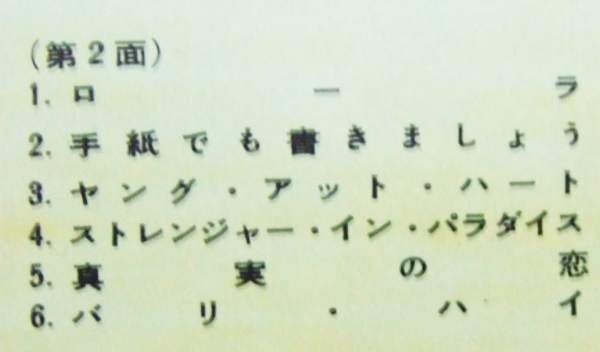 (第2面)
1. ローラ
2. 手紙でも書きましょう
3. ヤング・アット・ハート
4. ストレンジャー・イン・パラダイス
5. 真実の恋
6. バリ・ハイ